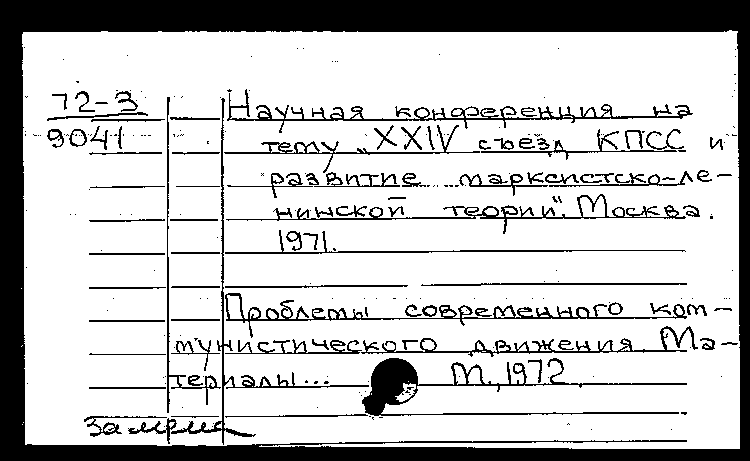 72-3
9041
Научная конференция на
тему „XXIV съезд КПСС и
развитие марксистско-ле-
нинской теории". Москва.
1971.
Проблемы современного ком-
мунистического движения. Ма-
териалы...
М., 1972.
замена